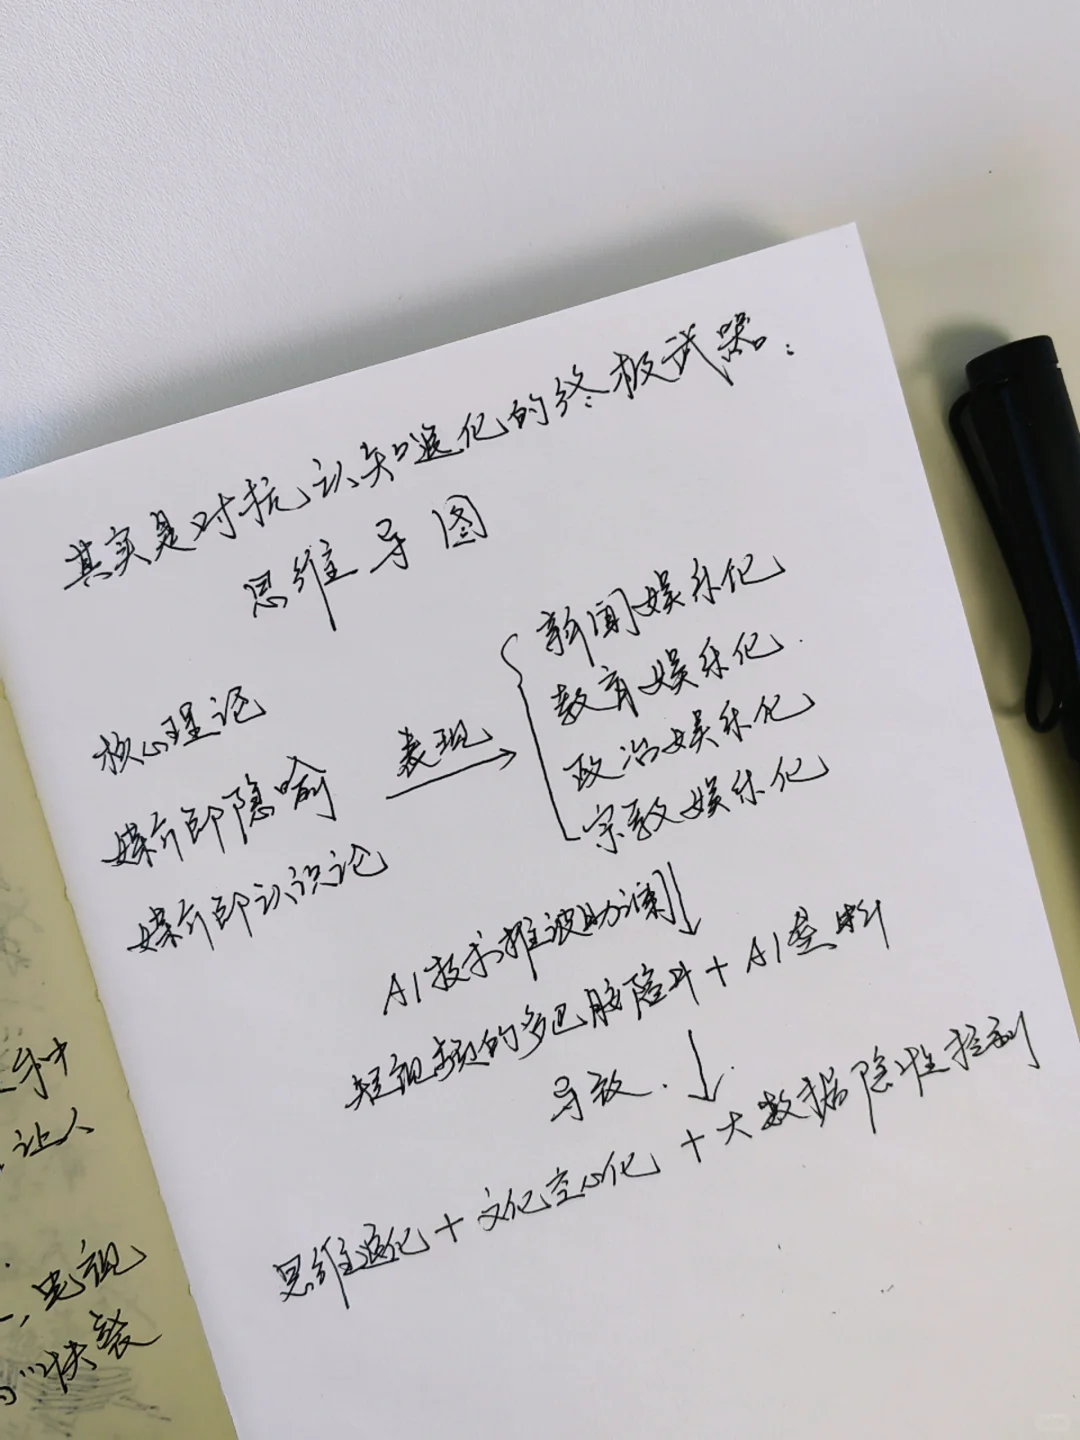 其实是对抗认知退化的终极武器：
思维导图
核心理论
媒介即隐喻
媒介即认识论
表现
新闻娱乐化
教育娱乐化
政治娱乐化
宗教娱乐化
AI技术推波助澜
短视频的多巴胺陷阱+AI垄断
导致
思维退化+文化空心化+大数据隐性控制
让人
电视
快餐